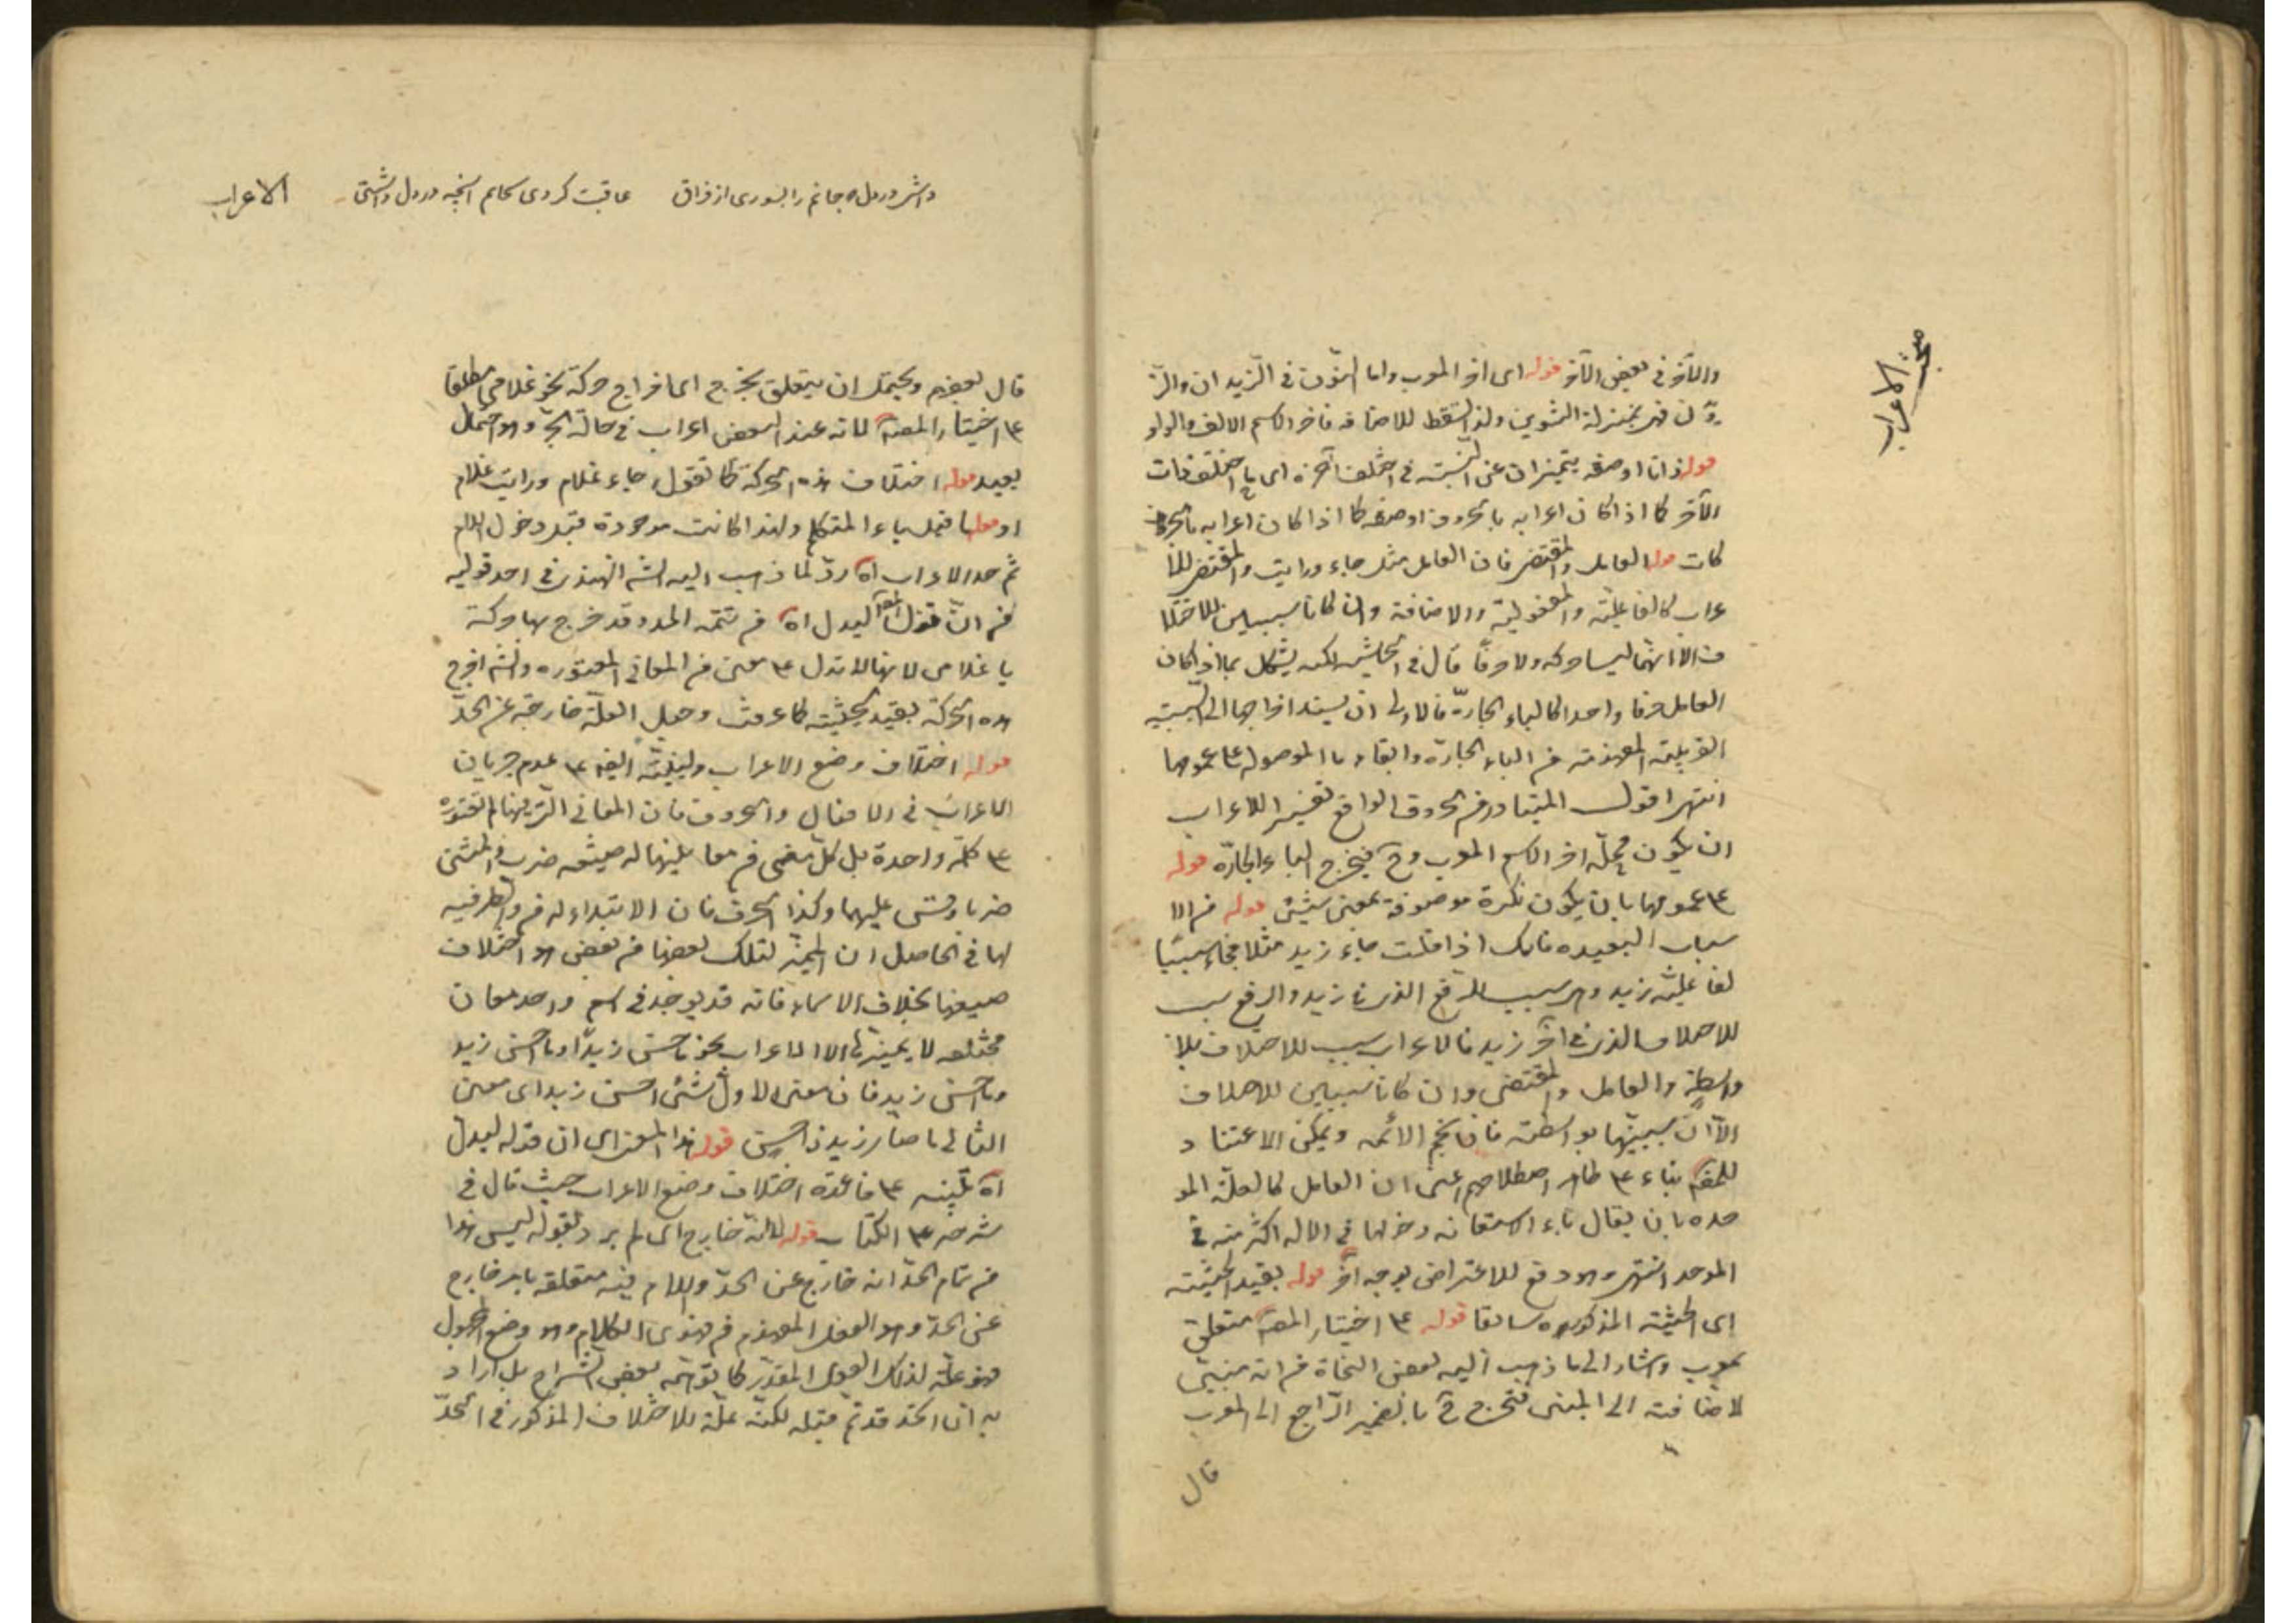 مبحث الاعراب
والآخر في بعض الآخر قوله اى آخر المعرب واما النون في الزيدان والز
يدون فهى بمنزلة التنوين ولذا تسقط للاضافة فآخر الاسم الالف والواو
قوله ذاتا او صفة يتميزان عن النسبة في اختلف آخره اى اختلف ذات
الآخر كما اذا كان اعرابه بالحروف او صفة كما اذا كان اعرابه بالحر
كات قوله العامل والمقتضى فان العامل مثل جاء ورايت والمقتضى للا
عراب كالفاعلية والمفعولية والاضافة وان كانا سببين للاختلا
ف الا انهما ليسا حركة ولا حرفا قال في الحاشية لكنه يشكل بما اذا كان
العامل حرفا واحدا كالباء الجارة فالاولى ان يسند اخراجها الى السببية
القريبة المفهومة من الباء الجارة وابقاء ما الموصولة ع عمومها
انتهى اقول المتبادر من الحروف الواقع تفسيرا للاعراب
ان يكون محله آخر الاسم المعرب وح فيخرج الباء الجارة قوله
ع عمومها بان يكون نكرة موصوفة بمعنى شيئ قوله من الا
سباب البعيدة فانك اذا قلت جاء زيد مثلا فجاء سبب
لفاعلية زيد وهى سبب للرفع الذى في زيد والرفع سبب
للاختلاف الذى في آخر زيد فالاعراب سبب للاختلاف بلا
واسطة والعامل والمقتضى وان كانا سببين للاختلاف
الا ان سببيتهما بواسطة فان نجم الائمة ويمكن الاعتذار
للمص بناء ع ظاهر اصطلاحهم اعنى ان العامل كالعلة المو
جدة بان يقال باء الاستعانة دخولها في الالة اكثر منه في
الموجد انتهى وهو دفع للاعتراض بوجه آخر قوله بقيد الحيثية
اى الحيثية المذكورة سابقا قوله ع اختيار المص متعلق
بمعرب واشار الى ما ذهب اليه بعض النحاة من انه مبنى
لاضافته الى المبنى فتخرج ح بالضمير الراجع الى المعرب
قال
داشتى در دل که جانم را بسوزى از فراق عاقبت كردى بكام آنچه در دل داشتى
الاعراب
قال بعضهم ويحتمل ان يتعلق بخرج اى اخراج حركة نحو غلامى مطلقا
ع اختيار المص لانه عند البعض اعراب في حالة الجر وهو احتمال
بعيد قوله اختلاف هذه الحركة كما تقول جاء غلام ورايت غلام
او قولها قبل ياء المتكلم ولهذا كانت موجودة قبل دخول العامل
ثم حد الاعراب اه رد لما ذهب اليه الشه الهندى في احد قوليه
من ان قول المص ليدل اه من تتمة الحد وقد خرج بها حركة
يا غلامى لانها لا تدل ع معنى من المعانى المعتورة والشه اخرج
هذه الحركة بقيد الحيثية كما عرفت وجعل العلة خارجة عن الحد
قوله اختلاف وضع الاعراب ولينبه ايض ع عدم جريان
الاعراب في الافعال والحروف فان المعانى التى فيها لم تعتوره
ع كلمة واحدة بل كل معنى من معانيها له صيغة ضرب والمثنى
ضربا وقس عليهما وكذا الحرف فان الابتداء له من والظرفية
لها في الحاصل ان المميز لتلك بعضها من بعض هو اختلاف
صيغها بخلاف الاسماء فانه قد يوجد في اسم واحد معان
مختلفة لا يميزها الا الاعراب نحو ما احسن زيدا وما احسن زيد
وما احسن زيد فان معنى الاول شئ احسن زيدا اى معنى
الثانى ما صار زيد ذا حسن قوله هذا المعنى اى ان قوله ليدل
اه تنبيه ع فائدة اختلاف وضع الاعراب حيث قال في
شرحه ع الكتاب قوله لا انه خارج اى لم يرد بقوله ليس هذا
من تمام الحد انه خارج عن الحد واللام فيه متعلقة بامر خارج
عن الحد وهو الفعل المفهوم من فحوى الكلام وهو وضع المجهول
فهو علة لذلك الفعل المقدر كما توهمه بعض الشراح بل اراد
به ان الحد قد تم قبله لكنه علة للاختلاف المذكور في الحد